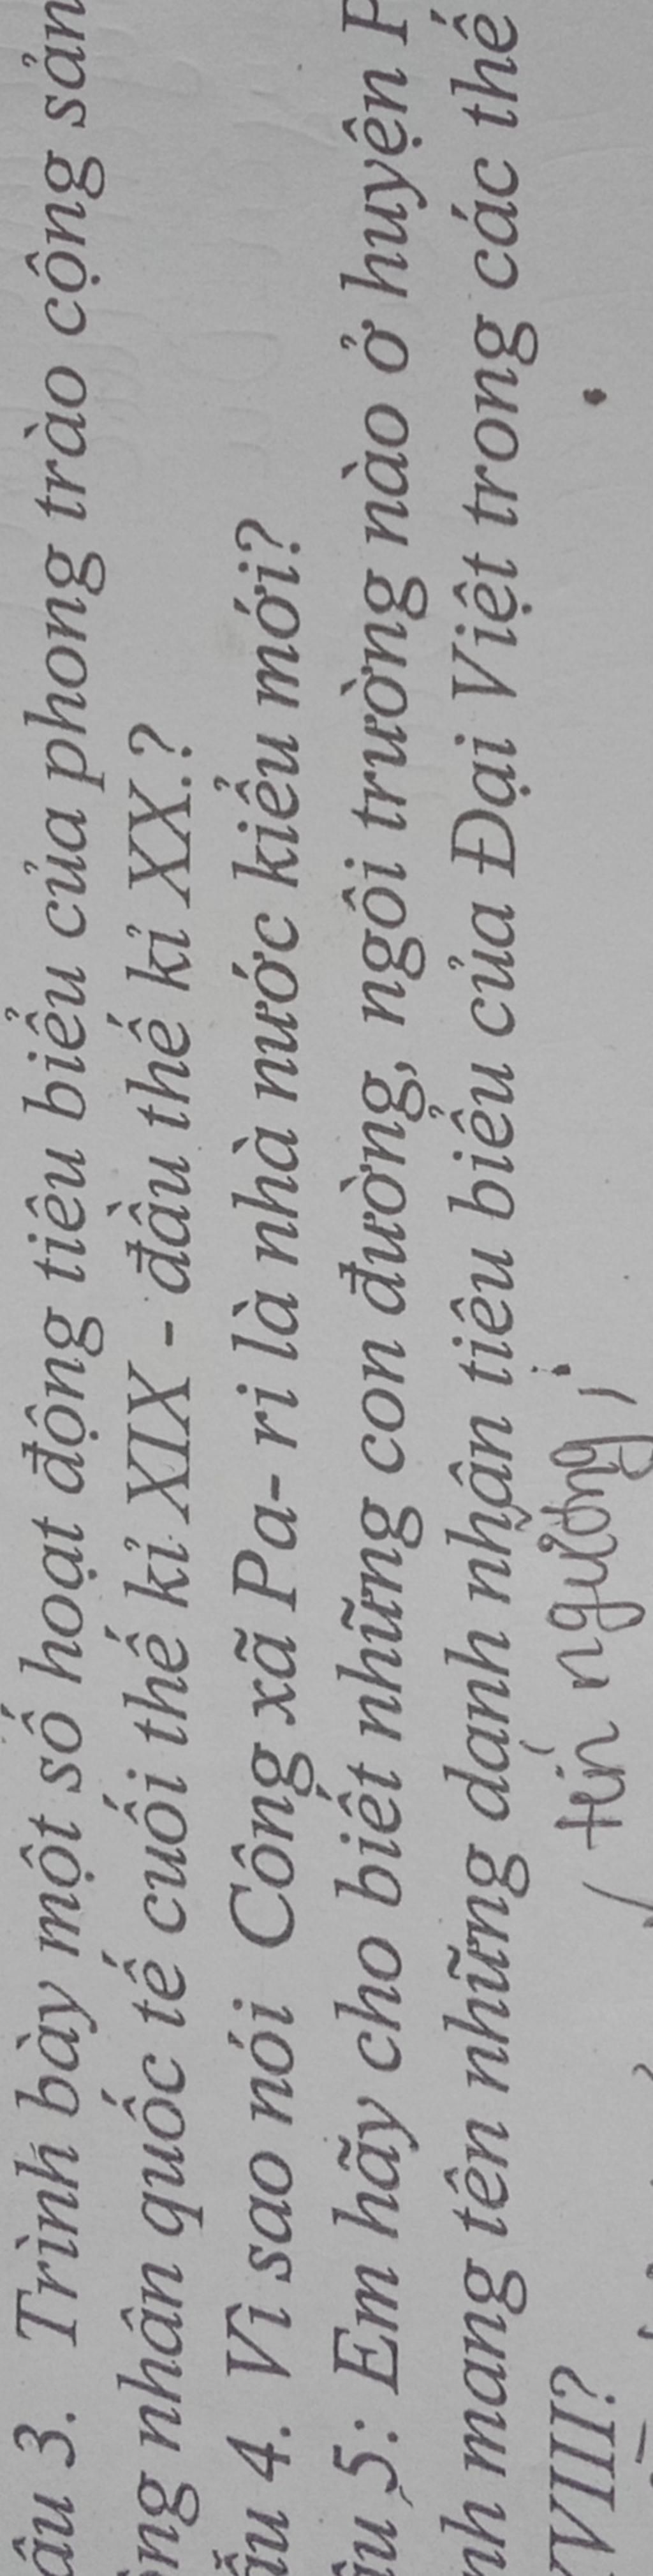 âu 3. Trình bày một số hoạt động tiêu biểu của phong trào cộng sản
ng nhân quốc tế cuối thế kỉ XIX - đầu thế kỉ XX.?
âu 4. Vì sao nói Công xã Pa- ri là nhà nước kiểu mới?
âu 5: Em hãy cho biết những con đường, ngôi trường nào ở huyện P
nh mang tên những danh nhân tiêu biểu của Đại Việt trong các thế
VIII?
tín ngưỡng